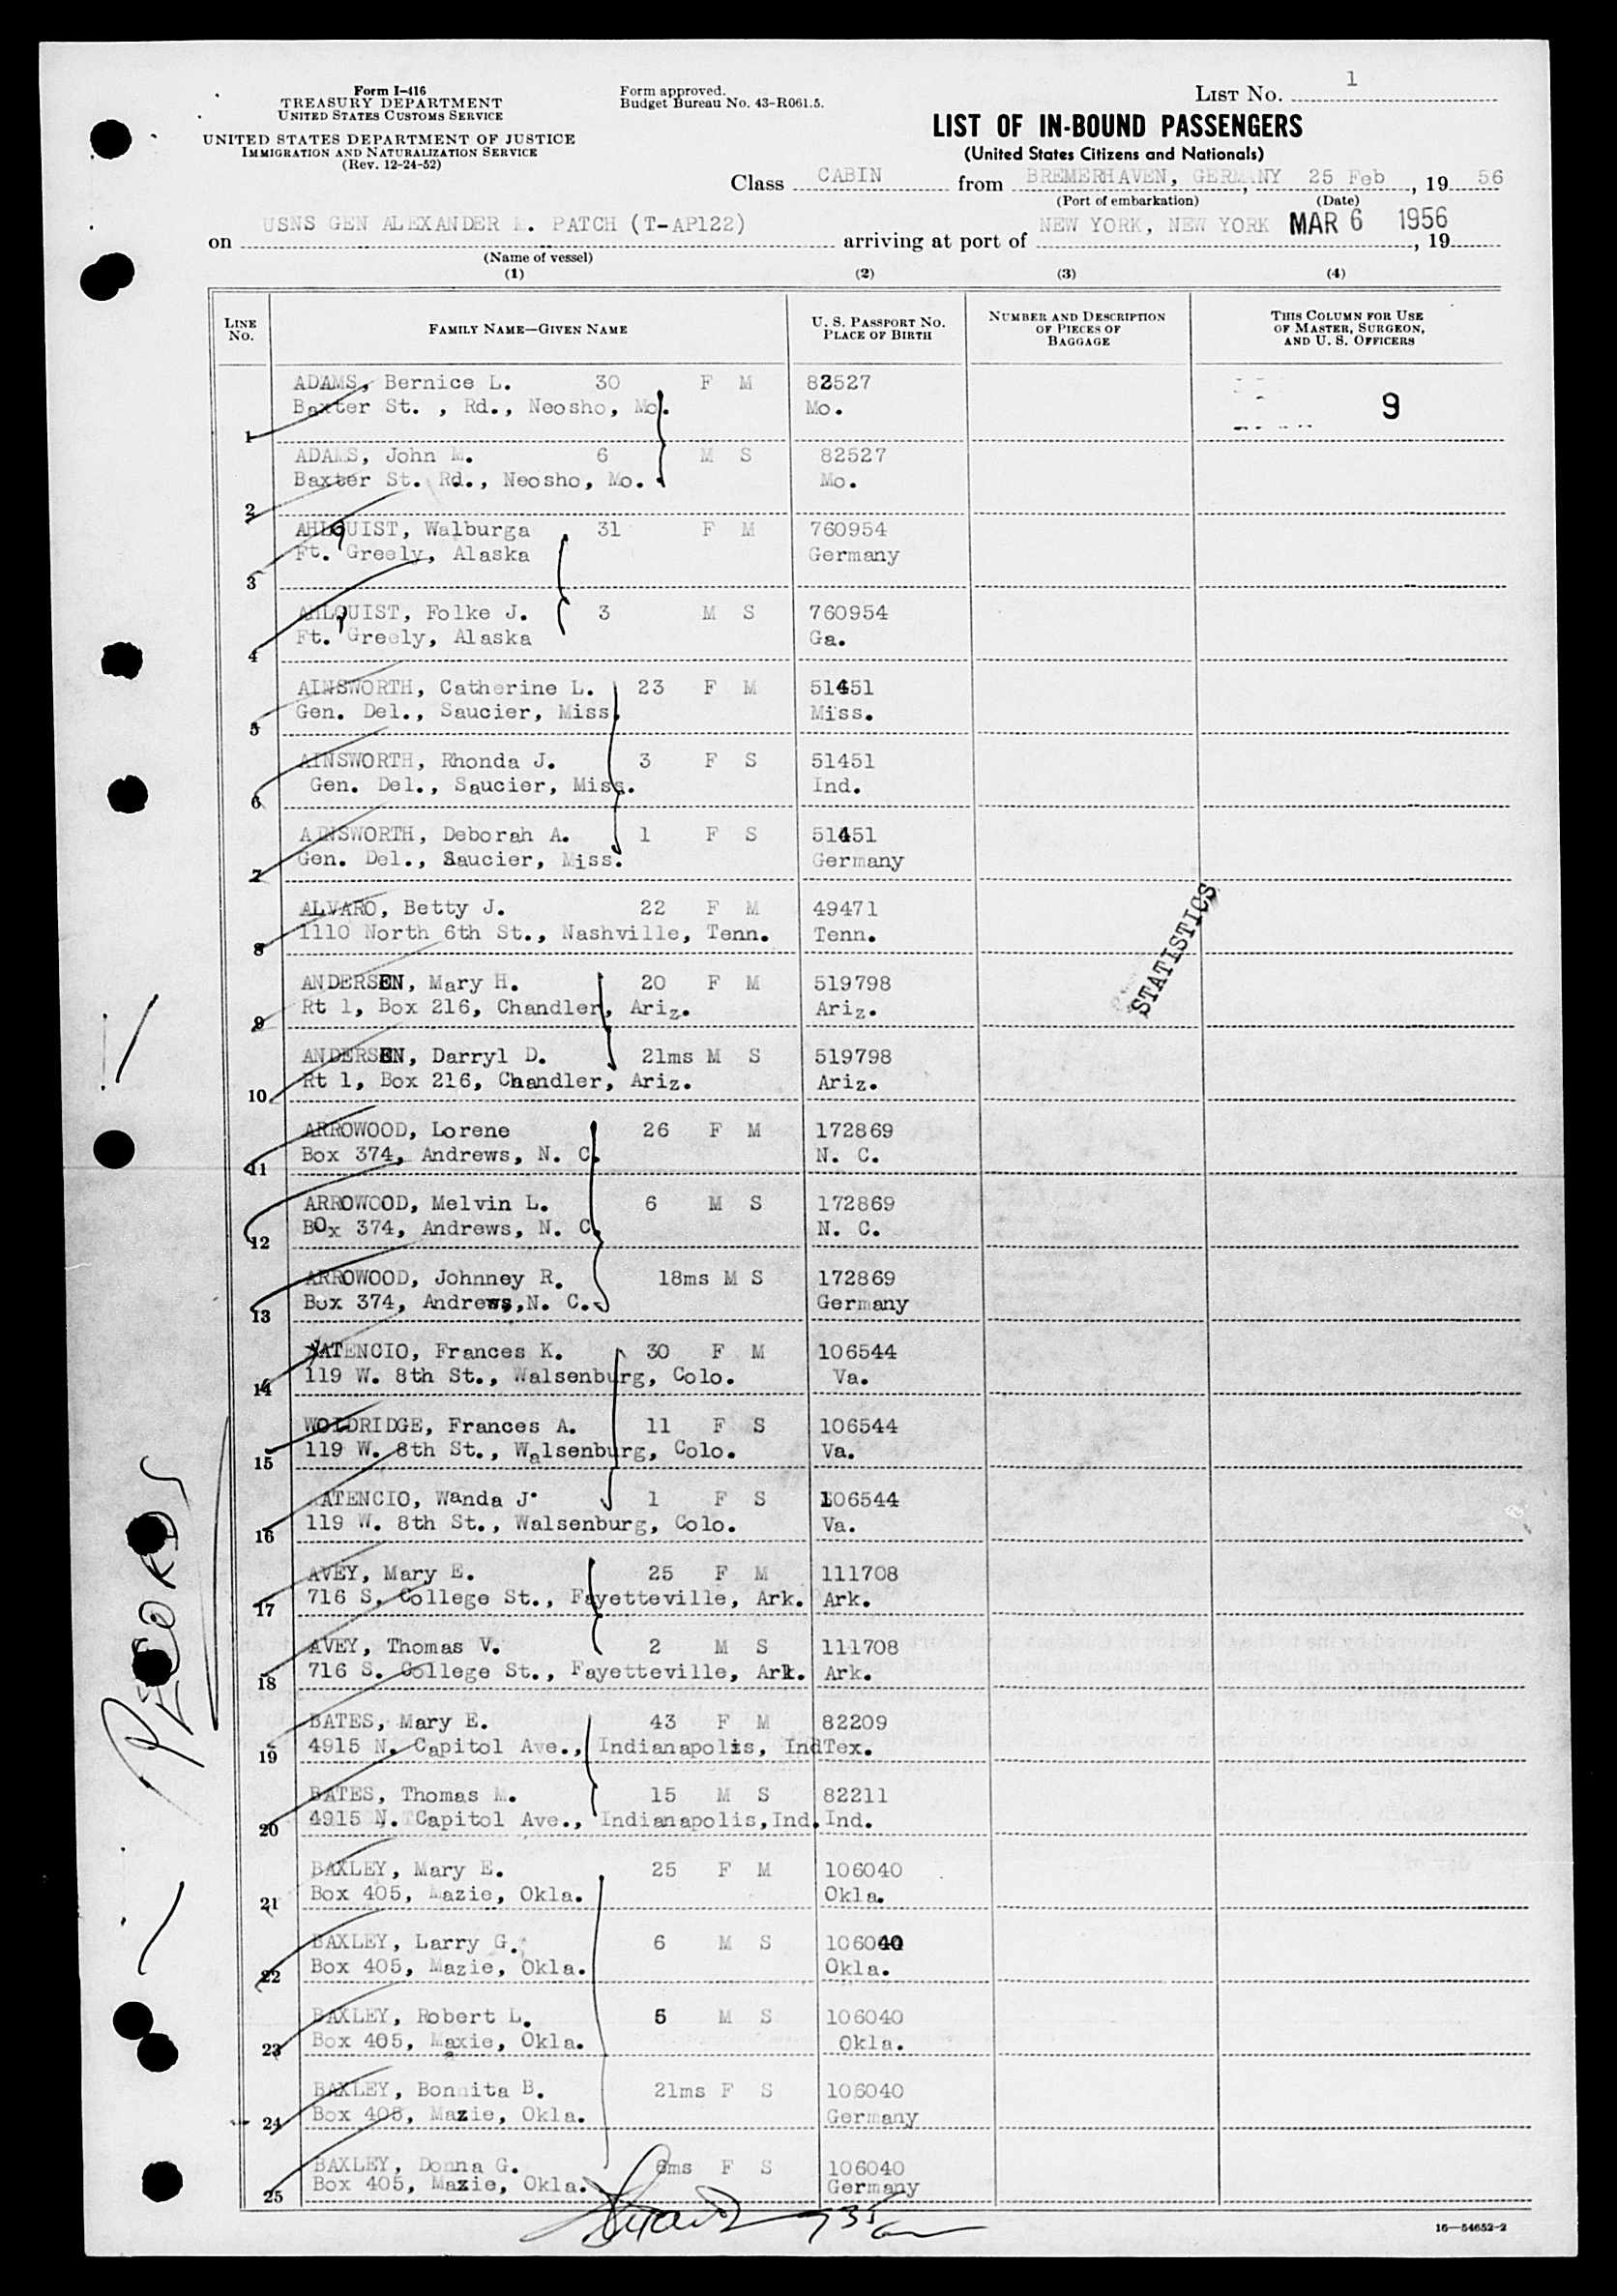 Form I-416
TREASURY DEPARTMENT
UNITED STATES CUSTOMS SERVICE
UNITED STATES DEPARTMENT OF JUSTICE
IMMIGRATION AND NATURALIZATION SERVICE
(Rev. 12-24-52)
Form approved.
Budget Bureau No. 43-R061.5.
LIST NO. 1
LIST OF IN-BOUND PASSENGERS
(United States Citizens and Nationals)
Class CABIN from BREMERHAVEN, GERMANY 25 Feb, 19 56
(Port of embarkation) (Date)
on USNS GEN ALEXANDER M. PATCH (T-AP122) arriving at port of NEW YORK, NEW YORK MAR 6 1956, 19
(Name of vessel)
(1) (2) (3) (4)
LINE NO. FAMILY NAME—GIVEN NAME U. S. PASSPORT NO. PLACE OF BIRTH NUMBER AND DESCRIPTION OF PIECES OF BAGGAGE THIS COLUMN FOR USE OF MASTER, SURGEON, AND U. S. OFFICERS
ADAMS, Bernice L. 30 F M 82527
Baxter St. , Rd., Neosho, Mo. Mo. 9
1
ADAMS, John M. 6 M S 82527
Baxter St. Rd., Neosho, Mo. Mo.
2
AHLQUIST, Walburga 31 F M 760954
Ft. Greely, Alaska Germany
3
AHLQUIST, Folke J. 3 M S 760954
Ft. Greely, Alaska Ga.
4
AINSWORTH, Catherine L. 23 F M 51451
Gen. Del., Saucier, Miss. Miss.
5
AINSWORTH, Rhonda J. 3 F S 51451
Gen. Del., Saucier, Miss. Ind.
6
AINSWORTH, Deborah A. 1 F S 51451
Gen. Del., Saucier, Miss. Germany
7
ALVARO, Betty J. 22 F M 49471
1110 North 6th St., Nashville, Tenn. Tenn.
8
STATISTICS
ANDERSEN, Mary H. 20 F M 519798
Rt 1, Box 216, Chandler, Ariz. Ariz.
9
ANDERSEN, Darryl D. 21ms M S 519798
Rt 1, Box 216, Chandler, Ariz. Ariz.
10
ARROWOOD, Lorene 26 F M 172869
Box 374, Andrews, N. C. N. C.
11
ARROWOOD, Melvin L. 6 M S 172869
Box 374, Andrews, N. C. N. C.
12
ARROWOOD, Johnney R. 18ms M S 172869
Box 374, Andrews,N. C. Germany
13
ATENCIO, Frances K. 30 F M 106544
119 W. 8th St., Walsenburg, Colo. Va.
14
WOLDRIDGE, Frances A. 11 F S 106544
119 W. 8th St., Walsenburg, Colo. Va.
15
ATENCIO, Wanda J. 1 F S 106544
119 W. 8th St., Walsenburg, Colo. Va.
16
AVEY, Mary E. 25 F M 111708
716 S. College St., Fayetteville, Ark. Ark.
17
AVEY, Thomas V. 2 M S 111708
716 S. College St., Fayetteville, Ark. Ark.
18
RECORDS
BATES, Mary E. 43 F M 82209
4915 N. Capitol Ave., Indianapolis, Ind Tex.
19
BATES, Thomas M. 15 M S 82211
4915 N. Capitol Ave., Indianapolis,Ind. Ind.
20
BAXLEY, Mary E. 25 F M 106040
Box 405, Mazie, Okla. Okla.
21
BAXLEY, Larry G. 6 M S 106040
Box 405, Mazie, Okla. Okla.
22
BAXLEY, Robert L. 5 M S 106040
Box 405, Maxie, Okla. Okla.
23
BAXLEY, Bonnita B. 21ms F S 106040
Box 405, Mazie, Okla. Germany
24
BAXLEY, Donna G. 6ms F S 106040
Box 405, Mazie, Okla. Germany
25
16—54652-2